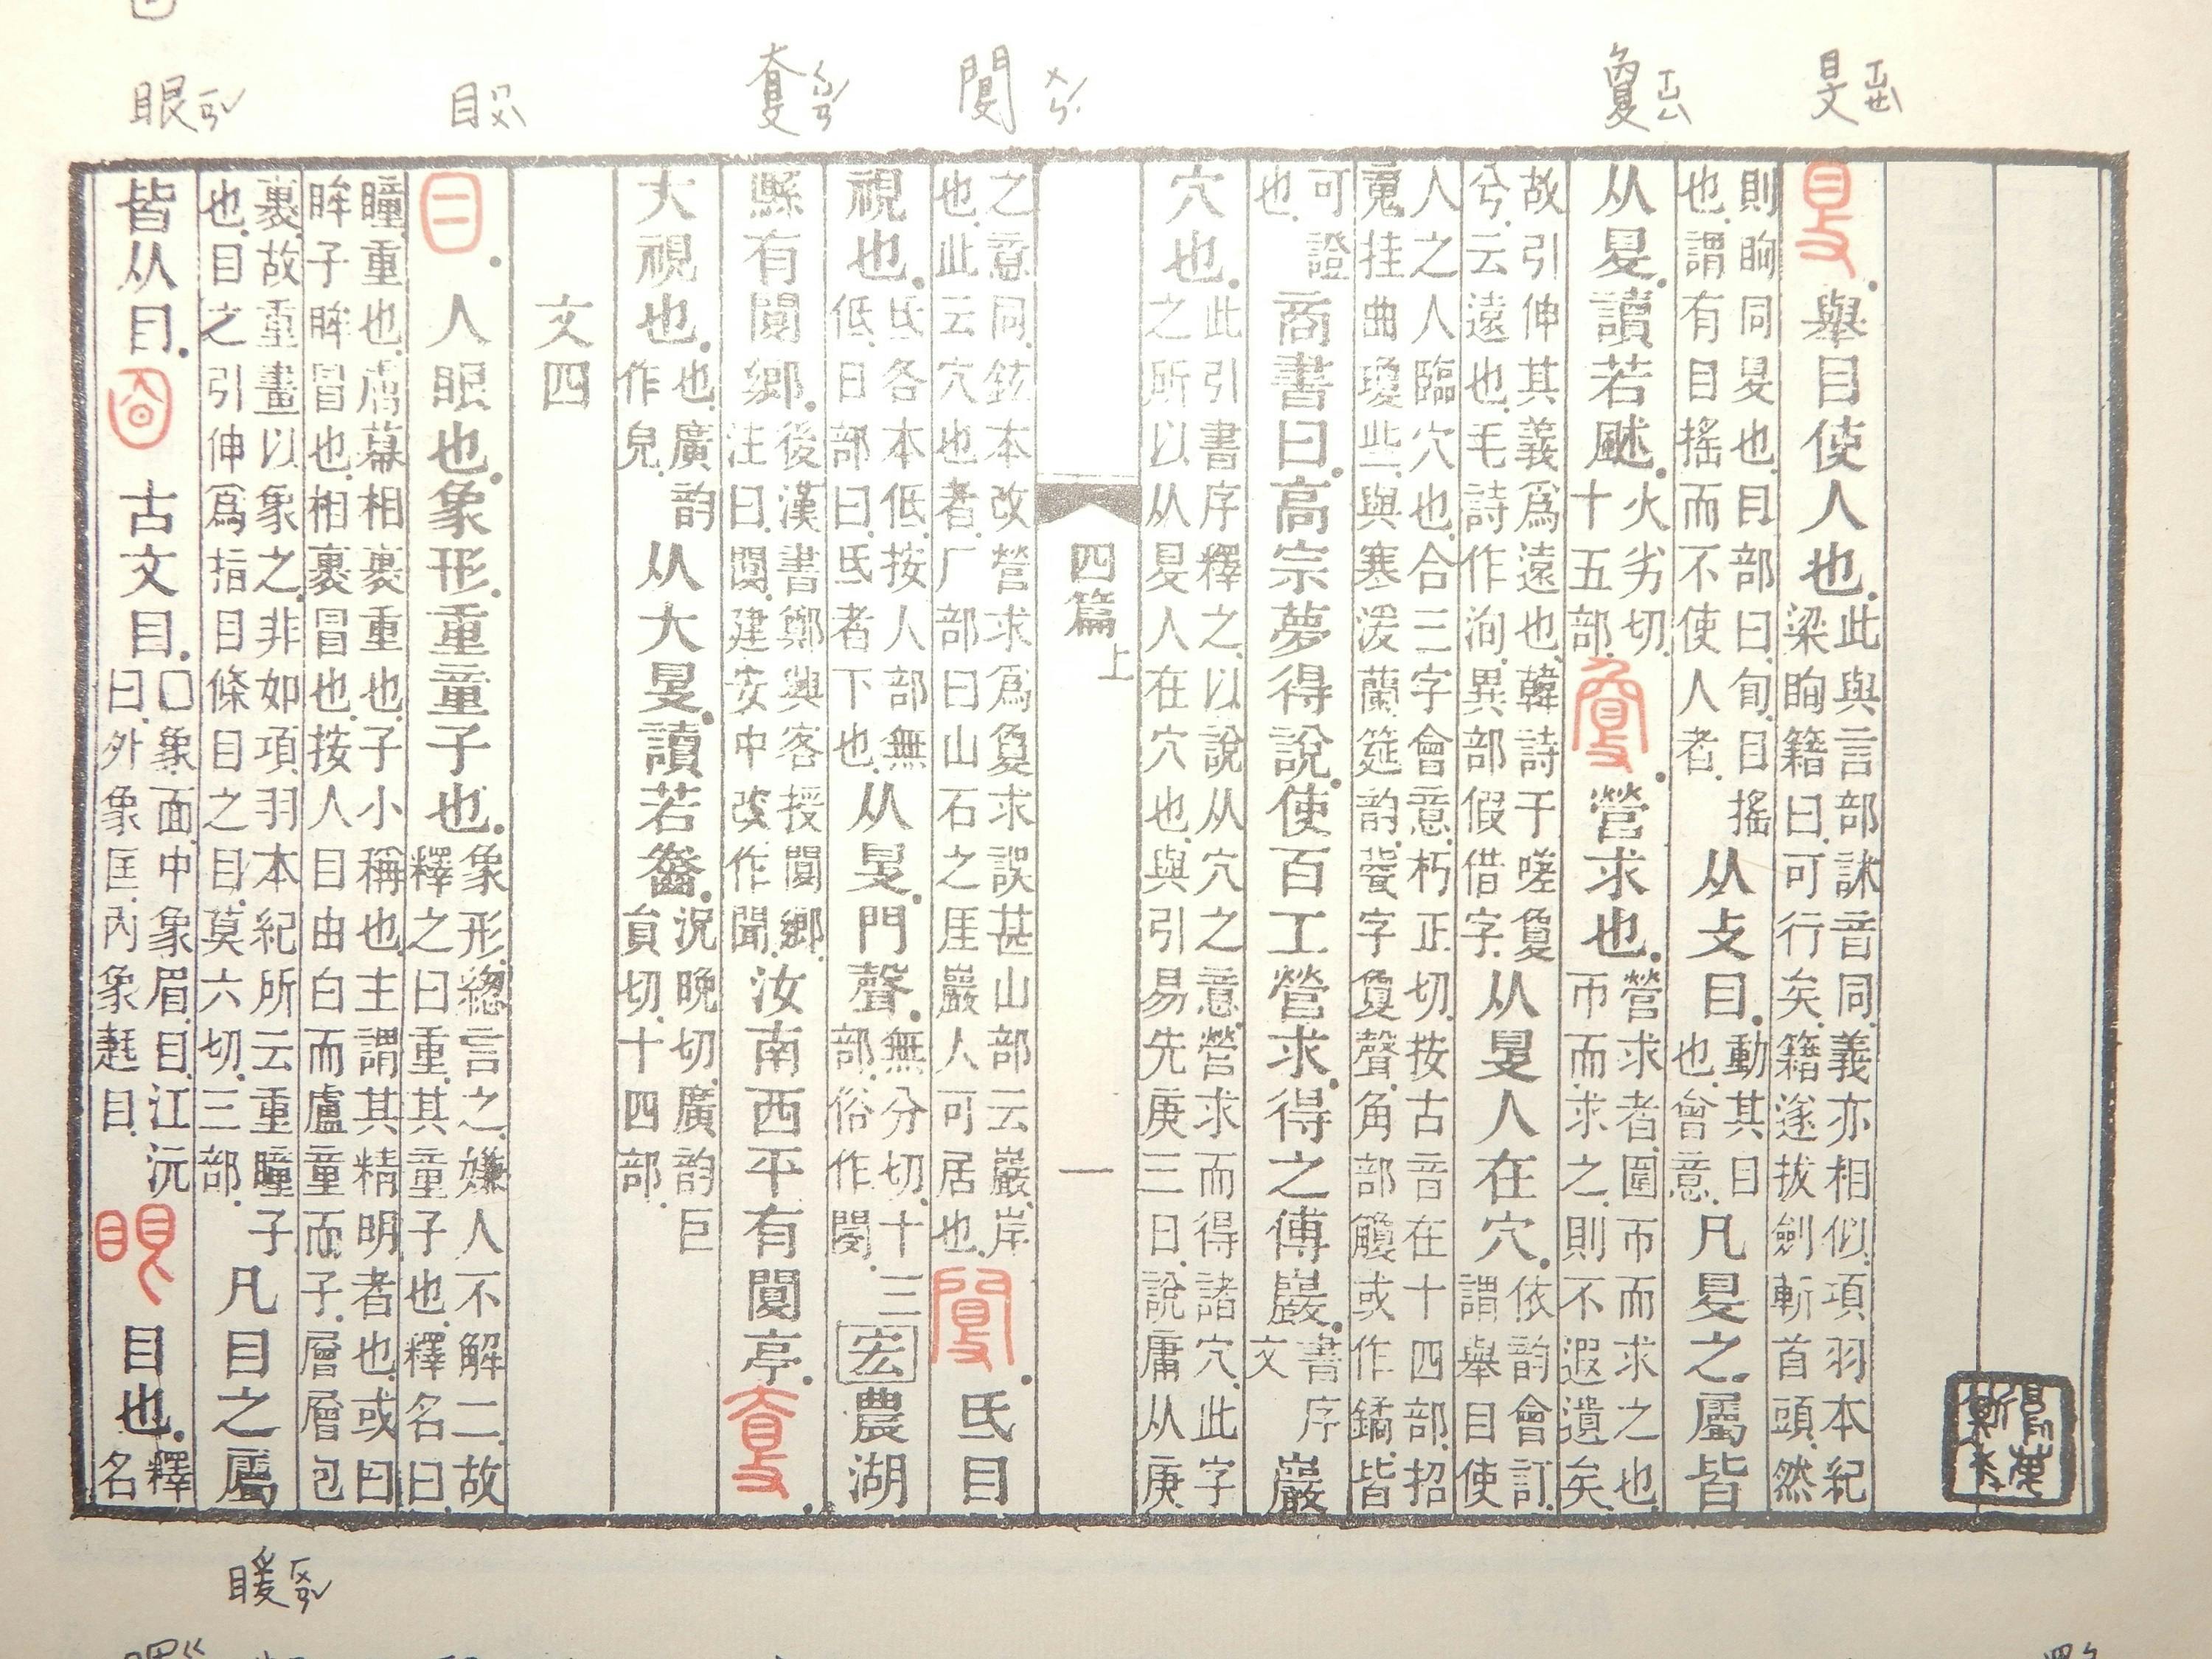 眼ㄧㄢˇ
目ㄇㄨˋ
閿ㄨㄣˊ
夐ㄒㄩㄥˋ
𥄎ㄒㄩㄝˋ
𥄎。舉目使人也。此與言部訹音同義亦相似。項羽本紀梁眴籍曰。可行矣。籍遂拔劍斬首頭。然
則眴同𥄎也。目部曰旬。目搖也。謂有目搖而不使人者。从攴目。動其目也。會意。凡𥄎之。屬皆
从𥄎。讀若䬂。火劣切。十五部。夐。營求也。營求者。圍帀而求之也。帀而求之。則不遐遺矣。
故引伸其義爲遠也。韓詩于嗟夐兮。云遠也。毛詩作洵。異部假借字。从𥄎人在穴。依韵會訂。謂舉目使
人之人臨穴也。合三字會意。朽正切。按古音在十四部。招䰟挂曲瓊些。與寒湲蘭筵韵。字夐聲。角部觼或作鐍。皆
可證也。商書曰。高宗夢得說。使百工營求。得之傅巖。書序文巖
穴也。此引書序釋之。以說从穴之意。營求而得諸穴。此字之所以从𥄎人在穴也。與引易先庚三日。說庸从庚
四篇上 一
之意同。鉉本改營求爲夐求誤甚。山部云巖。岸也。此云穴也者。厂部曰山石之厓巖。人可居也。閿。氐目
視也。氐各本低。按人部無低。日部曰氐者下也。从𥄎。門聲。無分切。十三部。俗作閺。宏農湖
縣有閿鄉。後漢書鄭興客授閿鄉。注曰。閿。建安中改作聞。汝南西平有閿亭。
大視也。也。廣韵作皃。从大𥄎。讀若。況晚切。廣韵巨貟切。十四部。
文四
目。人眼也。象形。重童子也。象形。緫言之。嫌人不解二。故釋之曰重其童子也。釋名曰。
瞳。重也。膚幕相裹重也。子。小稱也。主謂其精明者也。或曰眸子。眸。冒也。相裹冒也。按人目由白而盧童而子。層層包
裹。故重畫以象之。非如項羽本紀所云重瞳子也。目之引伸爲指目條目之目。莫六切。三部。凡目之屬
皆从目。古文目。囗象面。中象眉目。江沅曰。外象匡。內象𪓰目。眼。目也。釋名
暖